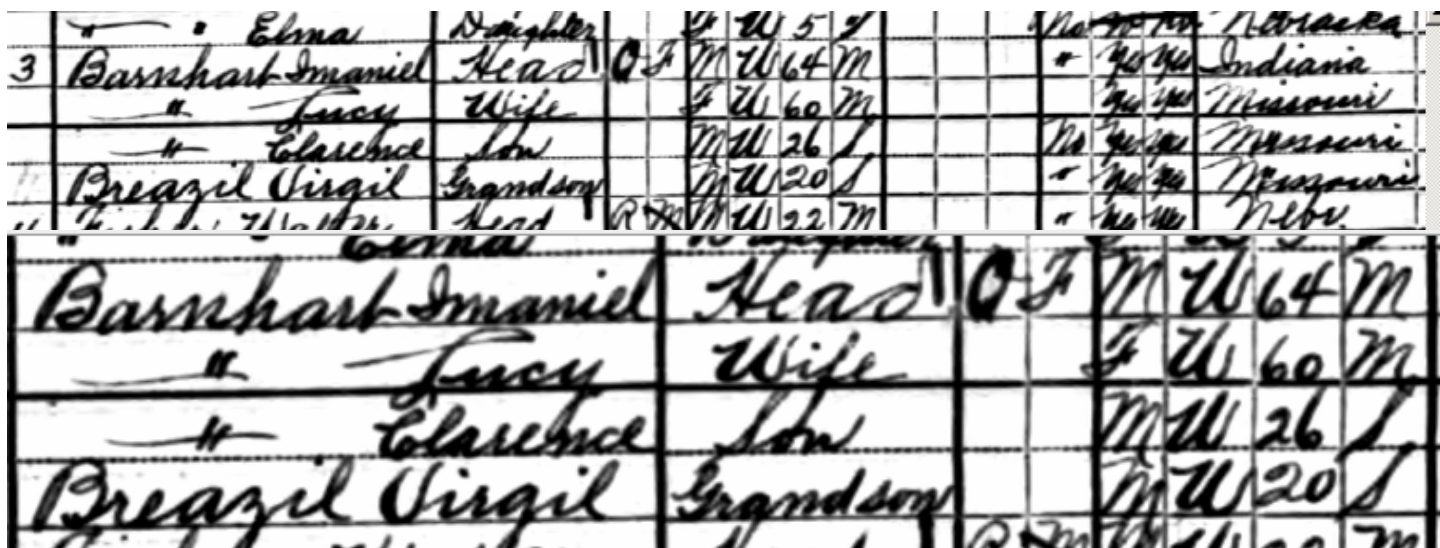 " " Elma Daughter F W 5 S No Nebraska
3 Barnhart Imaniel Head O F M W 64 M " Yes Yes Indiana
" Lucy Wife F W 60 M Yes Yes Missouri
" Clarence Son M W 26 S No Yes Yes Missouri
Breazil Virgil Grandson M W 20 S " Yes Yes Missouri
Walter Head R M M W 22 M " Yes Yes Nebr.
" " Elma
Barnhart Imaniel Head O F M W 64 M
" Lucy Wife F W 60 M
" Clarence Son M W 26 S
Breazil Virgil Grandson M W 20 S